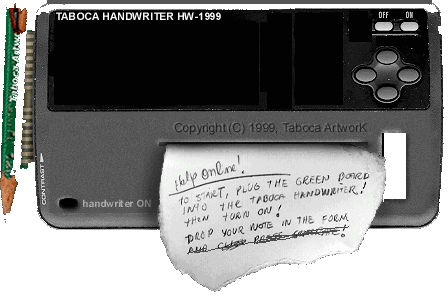 TABOCA HANDWRITER HW-1999
OFF ON
Taboca Artwork
Copyright (C) 1999, Taboca ArtworK
CONTRAST
handwriter ON
Help Online!
TO START, PLUG THE GREEN BOARD
INTO THE TABOCA HANDWRITER!
THEN TURN ON!
DROP YOUR NOTE IN THE FORM